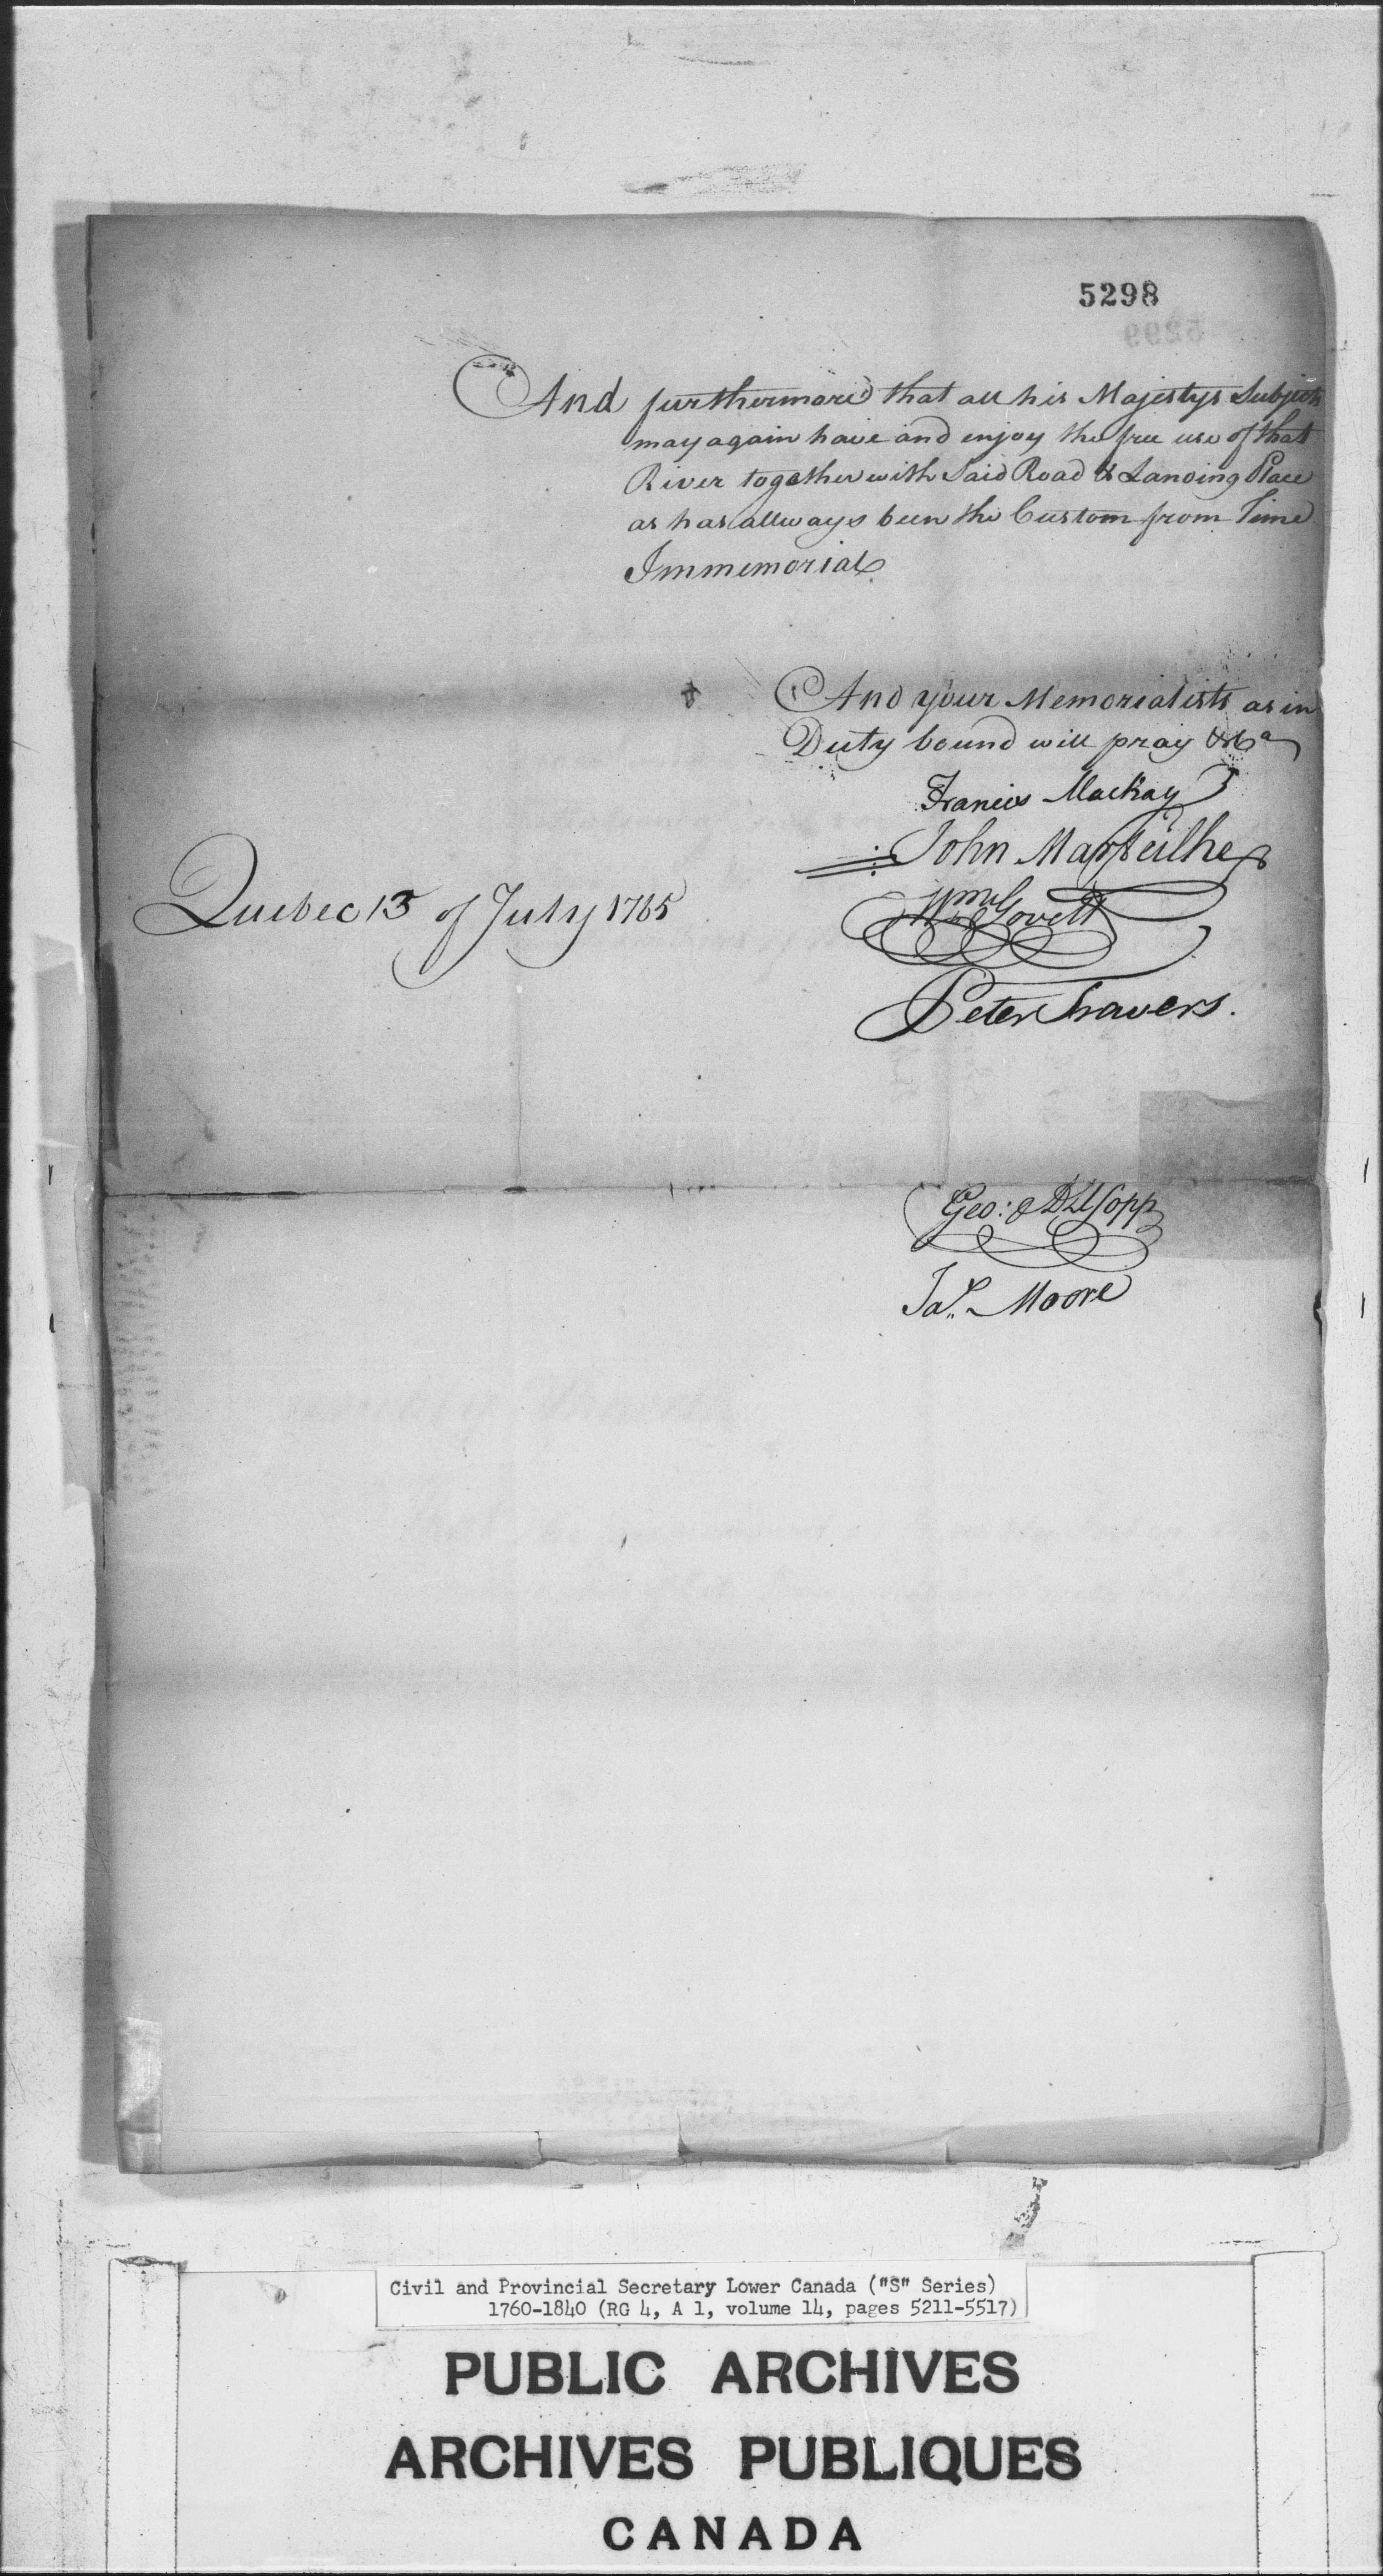 5298
And furthermore that all his Majestys Subjects
may again have and enjoy the free use of that
River together with Said Road & Landing Place
as has allways been the Custom from Time
Immemorial
And your Memorialists as in
Duty bound will pray &ca
Francis Mackay
John Marteilhe
Quebec 13 of July 1765
Lovett
Peter Travers.
Geo: Allsopp
Jas. Moore
Civil and Provincial Secretary Lower Canada ("S" Series)
1760-1840 (RG 4, A 1, volume 14, pages 5211-5517)
PUBLIC ARCHIVES
ARCHIVES PUBLIQUES
CANADA